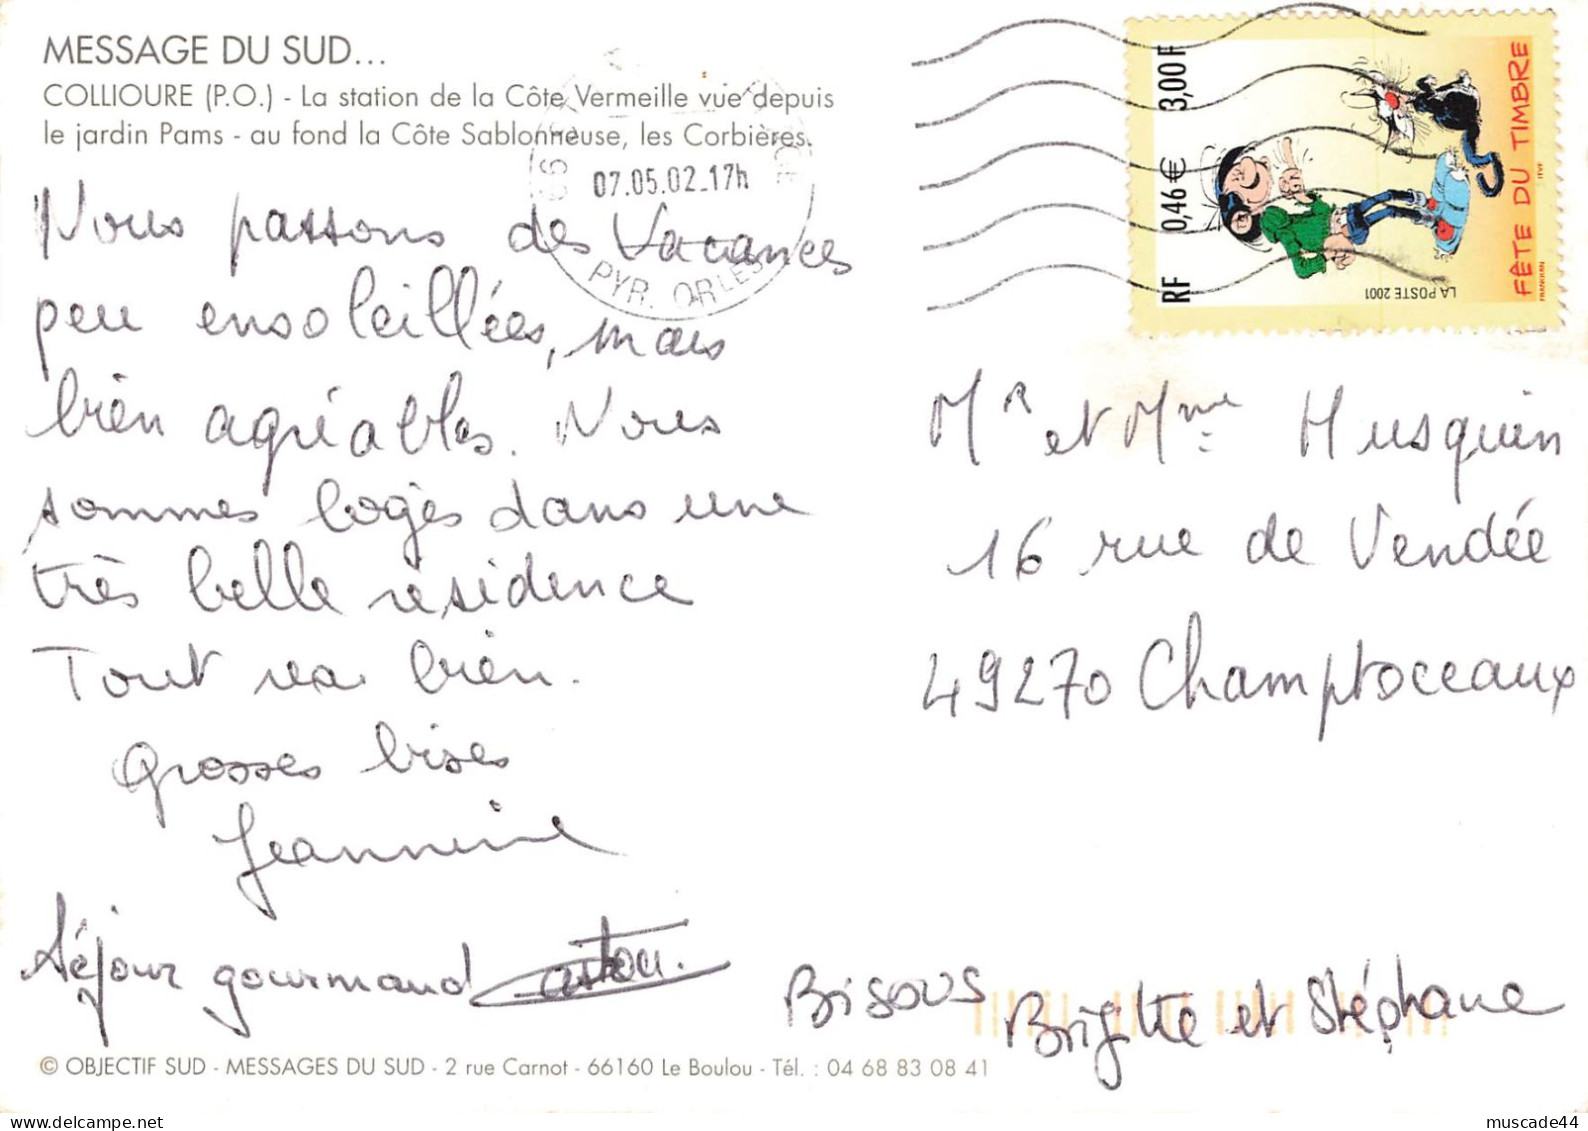 MESSAGE DU SUD...
COLLIOURE (P.O.) - La station de la Côte Vermeille vue depuis
le jardin Pams - au fond la Côte Sablonneuse, les Corbières.
07.05.02.17h
PYR. ORLES
RF 0,46 € 3,00 F
FÊTE DU TIMBRE
LA POSTE 2001
FRANQUIN
ITVF
Nous passons des Vacances
peu ensoleillées, mais
bien agréables. Nous
sommes logés dans une
très belle residence
Tout va bien.
Grosses bises
Jeannine
Séjour gourmand Gaston.
Mr et Mme Musquin
16 rue de Vendée
49270 Champtoceaux
Bisous Brigitte et Stéphane
© OBJECTIF SUD - MESSAGES DU SUD - 2 rue Carnot - 66160 Le Boulou - Tél. : 04 68 83 08 41
muscade44